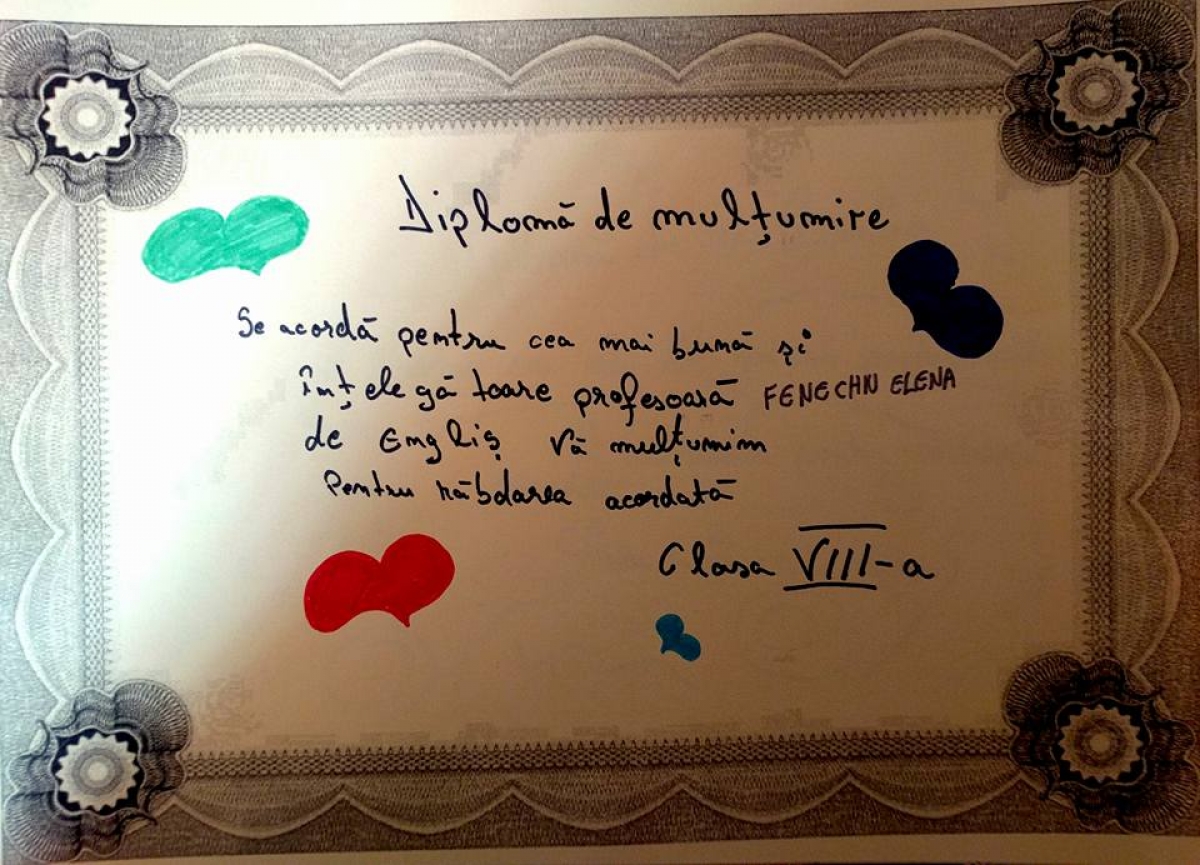 Diplomă de mulțumire
Se acordă pentru cea mai bună și
înțelegătoare profesoară FENECHIU ELENA
de Engliș Vă mulțumim
Pentru răbdarea acordată
Clasa VIII-a